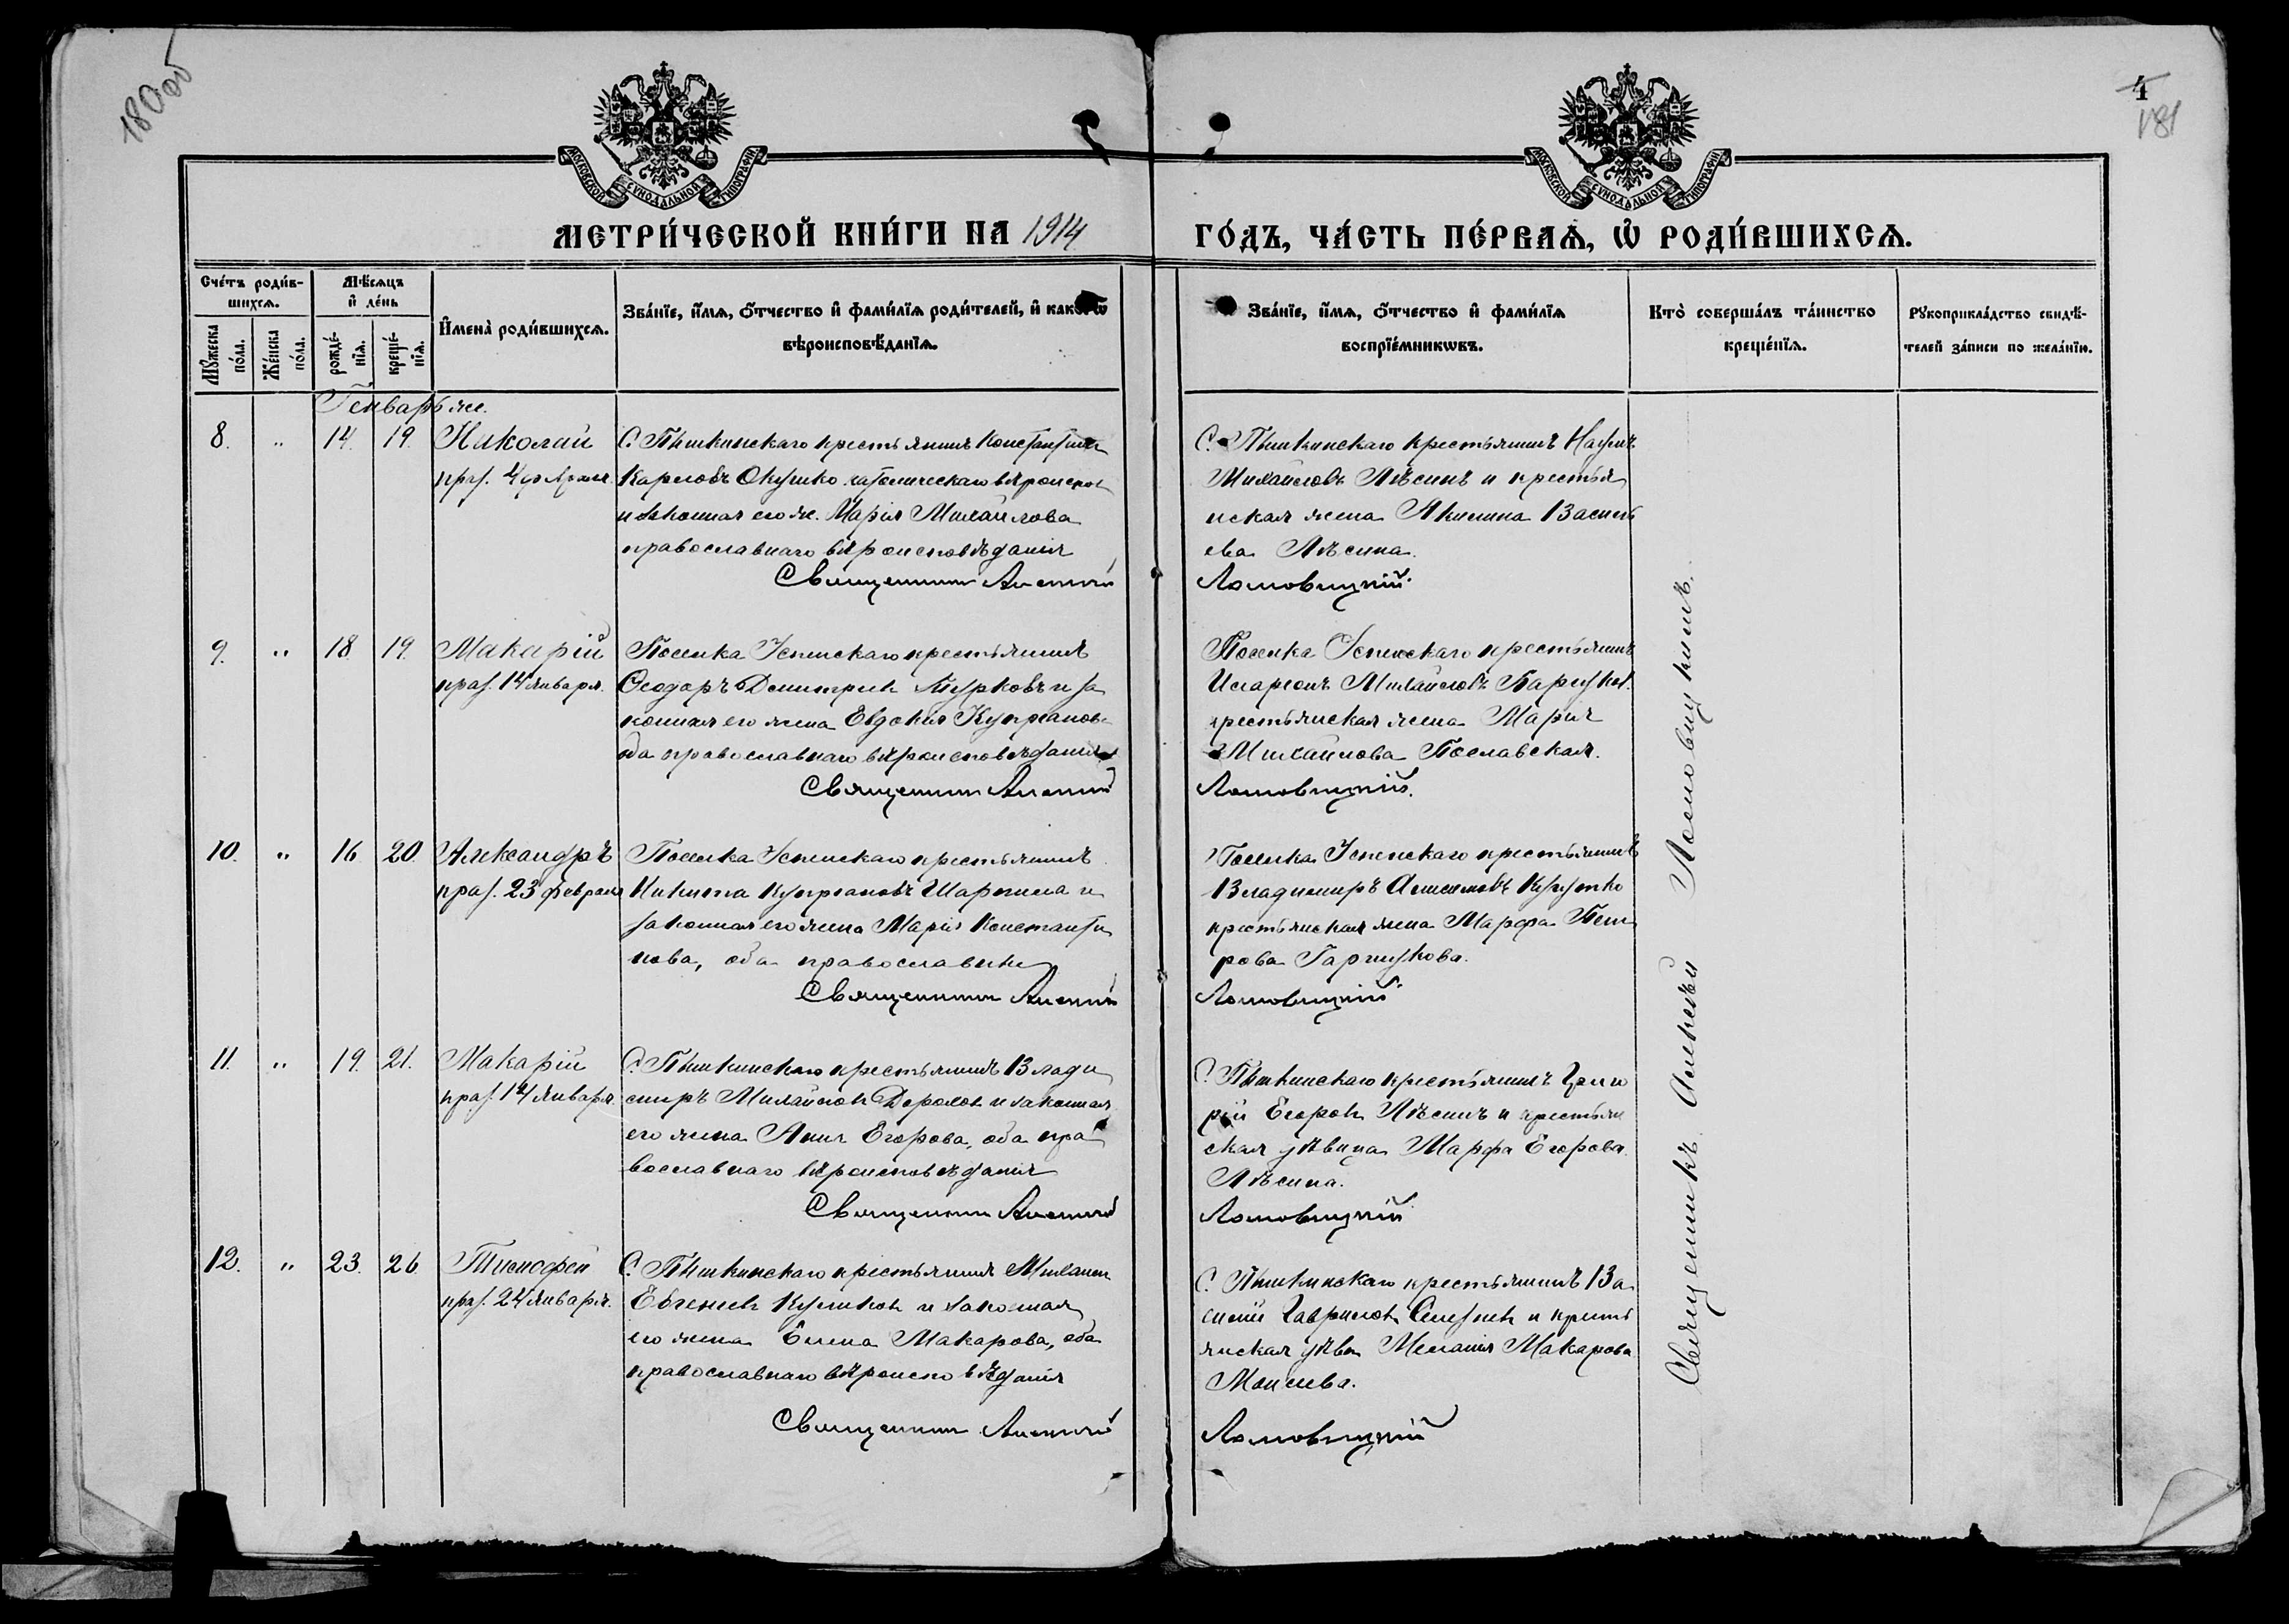 180 об
4
181
МОСКОВСКОЙ СѴНОДАЛЬНОЙ ТИПОГРАФІИ
МОСКОВСКОЙ СѴНОДАЛЬНОЙ ТИПОГРАФІИ
МЕТРИ́ЧЕСКОЙ КНИ́ГИ НА 1914
ГО́ДЪ, ЧА́СТЬ ПЕ́РВАѦ, Ѿ РОДИ́ВШИХСѦ.
Сче́тъ роди́в-
шихсѧ.
Мѣ́сѧцъ
и҆ де́нь
Мꙋ́жеска
по́ла.
Же́нска
по́ла.
рожде́-
нїѧ.
креще́-
нїѧ.
И҆мена̀ роди́вшихсѧ.
Зва́нїе, и҆́мѧ, ѻ҆́тчество и҆ фами́лїѧ роди́телей, и҆ како́гѡ
вѣроисповѣ́данїѧ.
Зва́нїе, и҆́мѧ, ѻ҆́тчество и҆ фами́лїѧ
воспрїе́мникѡвъ.
Кто̀ соверша́лъ та́инство
креще́нїѧ.
Рꙋкоприкла́дство свидѣ́-
телей за́писи по жела́нїю.
Генварь мц.
8. " 14. 19. Николай
праз. 4
С. Пышкинскаго крестьянинъ Константинъ
Карловъ Окушко католическаго вѣроиспов
и законная его ж. Марія Михайлова
православнаго вѣроисповѣданія
Священникъ Алексій
С. Пышкинскаго крестьянинъ Наумъ
Михайловъ Лѣсинъ и крестья
нская жена Акилина Василь
ева Лѣсина.
Ломовицкій.
9. " 18. 19. Макарій
праз. 14 января.
Поселка Успенскаго крестьянинъ
Ѳеодоръ Димитріевъ и за
конная его жена Евдокія Купріанова
оба православнаго вѣроисповѣданія
Священникъ Алексій
Поселка Успенскаго крестьянинъ
Иларіонъ Михайловъ
крестьянская жена Марія
Михайлова Пославская.
Ломовицкій.
10. " 16 20. Александръ
праз. 23 февраля
Поселка Успенскаго крестьянинъ
Никита Купріановъ и
законная его жена Марія Константи
нова, оба православные
Священникъ Алексій
Поселка Успенскаго крестьянинъ
Владимиръ
крестьянская жена Марфа Пет
рова
Ломовицкій
11. " 19. 21. Макарій
праз. 14 января.
С. Пышкинскаго крестьянинъ Влади
миръ Михайловъ Дороховъ и законная
его жена Анна Егорова, оба пра
вославнаго вѣроисповѣданія
Священникъ Алексій
С. Пышкинскаго крестьянинъ Григо
рій Егоровъ Лѣсинъ и крестьян
ская дѣвица Марфа Егорова
Лѣсина.
Ломовицкій
12. " 23. 26 Тимофей
праз. 24 января.
С. Пышкинскаго крестьянинъ Михаилъ
Евгеніевъ Куликовъ и законная
его жена Елена Макарова, оба
православнаго вѣроисповѣданія
Священникъ Алексій
С. Пышкинскаго крестьянинъ Ва
силій Гавриловъ и кресть
янская дѣв. Меланія Макарова
Моисеева.
Ломовицкій
Священникъ Алексѣй Ломовицкій.